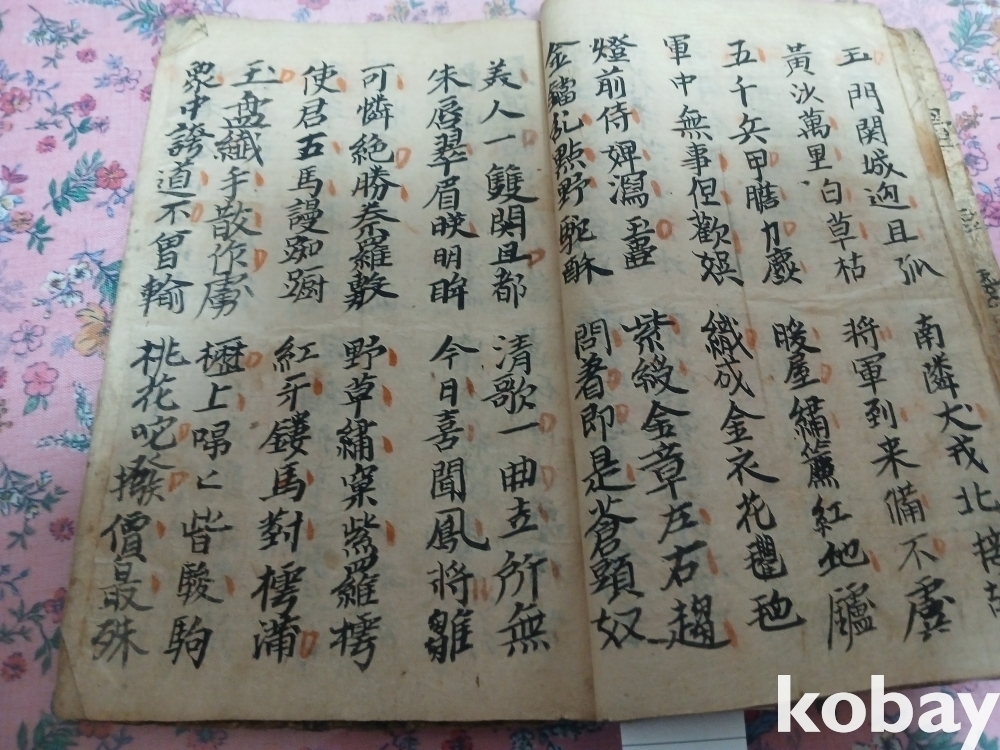 玉門関城逈且孤 南隣犬戎北接
黃沙萬里白草枯 将軍到来備不虞
五千兵甲膽力麤 暖屋繡簾紅地爐
軍中無事但歡娯 織成金衣花氍毹
燈前侍婢瀉玉壺 紫綬金章左右趨
金鐺乱點野駞酥 問着即是蒼頭奴
美人一雙閑且都 清歌一曲世所無
朱唇翠眉暎明眸 今日喜聞鳳将雛
可憐絶勝秦羅敷 野草繡窠紫羅襦
使君五馬謾踟蹰 紅牙鏤馬對樗蒲
玉盘纖手散作盧 櫪上昻〻皆駿駒
衆中誇道不曽輸 桃花叱撥價最殊
kobay